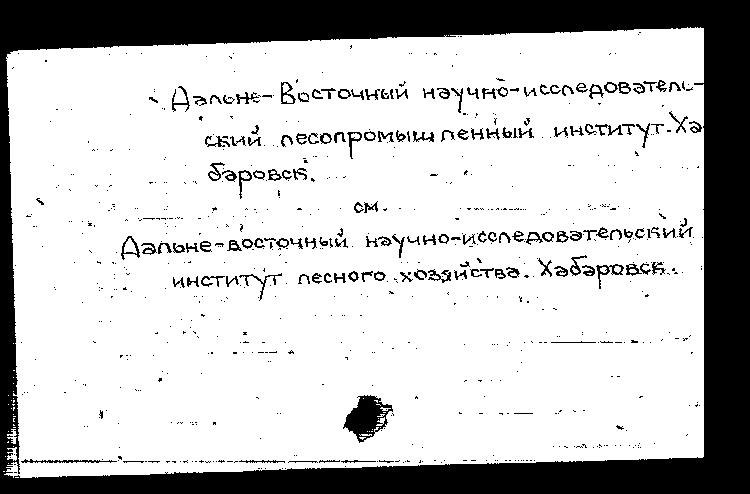 Дальне-Восточный научно-исследователь-
ский лесопромышленный институт. Ха-
баровск.
см.
Дальне-восточный научно-исследовательский
институт лесного хозяйства. Хабаровск.